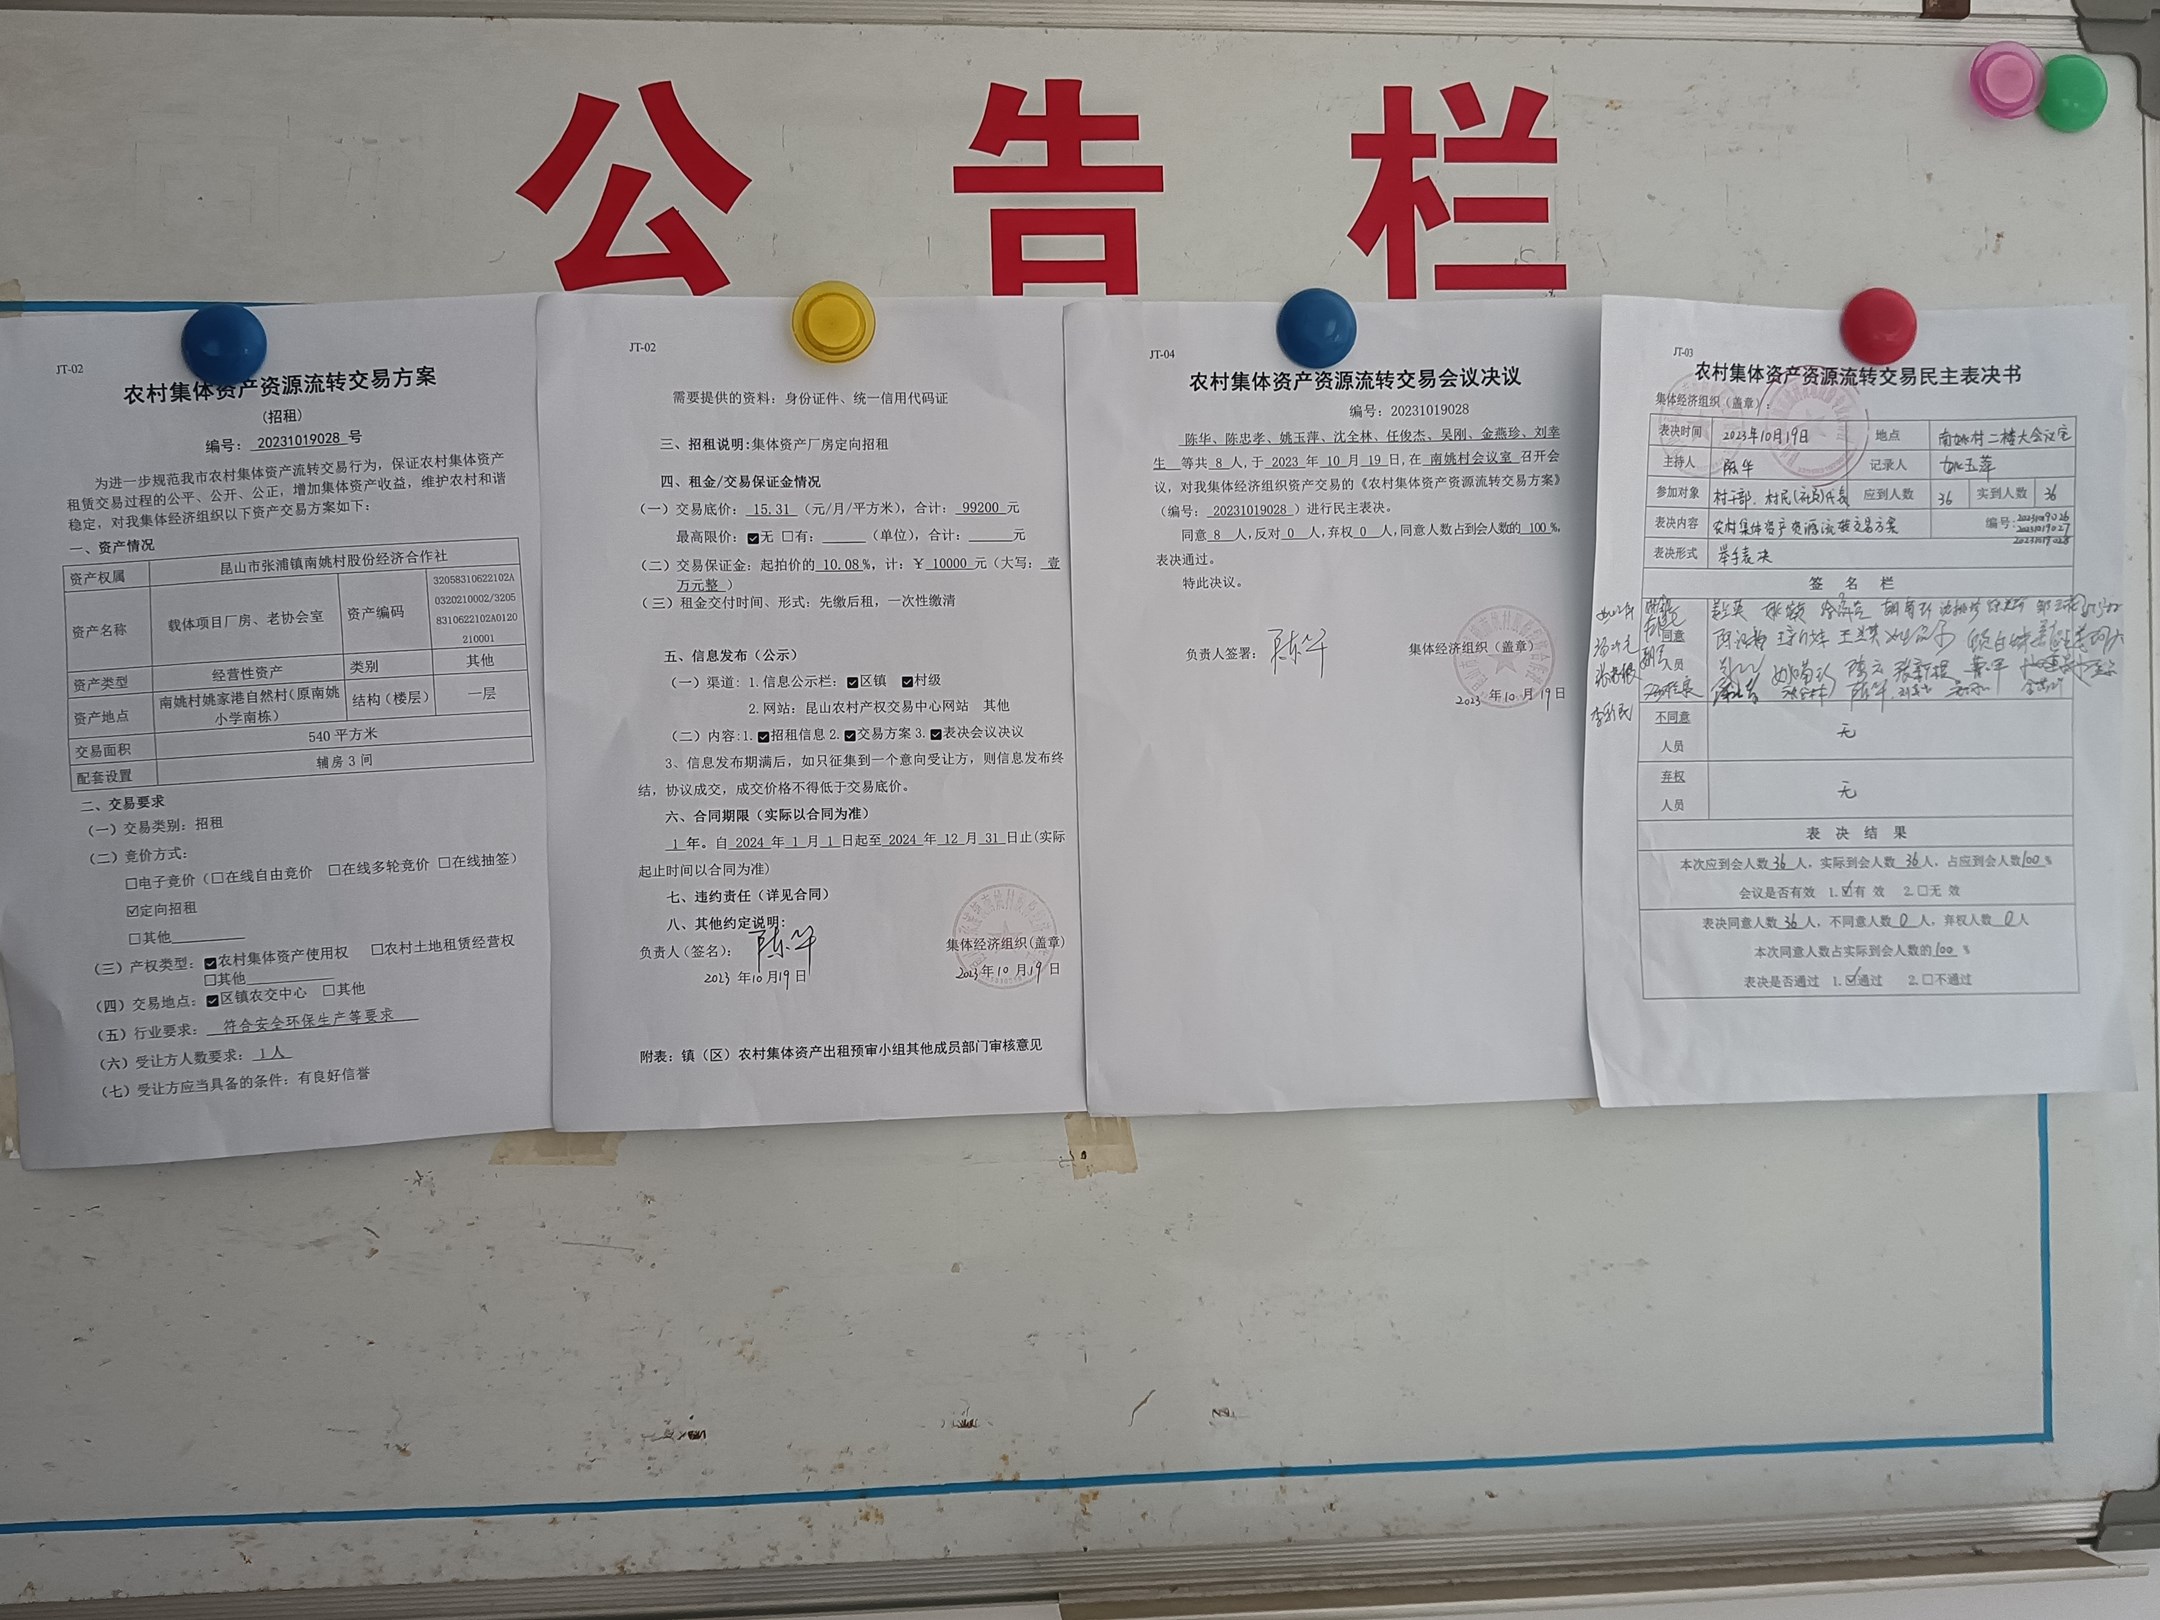 公告栏
JT-02
农村集体资产资源流转交易方案
(招租)
编号： 20231019028 号
为进一步规范我市农村集体资产流转交易行为，保证农村集体资产
租赁交易过程的公平、公开、公正，增加集体资产收益，维护农村和谐
稳定，对我集体经济组织以下资产交易方案如下：
一、资产情况
资产权属 昆山市张浦镇南姚村股份经济合作社
资产名称 载体项目厂房、老协会室 资产编码 32058310622102A
0320210002/3205
8310622102A0120
210001
资产类型 经营性资产 类别 其他
资产地点 南姚村姚家港自然村(原南姚
小学南栋) 结构（楼层） 一层
交易面积 540 平方米
配套设置 辅房 3 间
二、交易要求
（一）交易类别：招租
（二）竞价方式：
☐电子竞价（☐在线自由竞价 ☐在线多轮竞价 ☐在线抽签）
☑定向招租
☐其他
（三）产权类型：☑农村集体资产使用权 ☐农村土地租赁经营权
☐其他
（四）交易地点：☑区镇农交中心 ☐其他
（五）行业要求： 符合安全环保生产等要求
（六）受让方人数要求： 1 人
（七）受让方应当具备的条件：有良好信誉
JT-02
需要提供的资料：身份证件、统一信用代码证
三、招租说明:集体资产厂房定向招租
四、租金/交易保证金情况
（一）交易底价： 15.31 （元/月/平方米），合计： 99200 元
最高限价：☑无 ☐有： （单位），合计： 元
（二）交易保证金：起拍价的 10.08 %，计：￥ 10000 元（大写： 壹
万元整 ）
（三）租金交付时间、形式：先缴后租，一次性缴清
五、信息发布（公示）
（一）渠道：1.信息公示栏：☑区镇 ☑村级
2.网站：昆山农村产权交易中心网站 其他
（二）内容:1.☑招租信息 2.☑交易方案 3.☑表决会议决议
3、信息发布期满后，如只征集到一个意向受让方，则信息发布终
结，协议成交，成交价格不得低于交易底价。
六、合同期限（实际以合同为准）
1 年。自 2024 年 1 月 1 日起至 2024 年 12 月 31 日止(实际
起止时间以合同为准)
七、违约责任（详见合同）
八、其他约定说明:
负责人（签名）： 陈华 集体经济组织(盖章)
2023 年 10 月 19 日 2023 年 10 月 19 日
附表：镇（区）农村集体资产出租预审小组其他成员部门审核意见
JT-04
农村集体资产资源流转交易会议决议
编号：20231019028
陈华、陈忠孝、姚玉萍、沈全林、任俊杰、吴刚、金燕珍、刘幸
生 等共 8 人,于 2023 年 10 月 19 日,在 南姚村会议室 召开会
议，对我集体经济组织资产交易的《农村集体资产资源流转交易方案》
（编号： 20231019028 ）进行民主表决。
同意 8 人,反对 0 人,弃权 0 人,同意人数占到会人数的 100 %,
表决通过。
特此决议。
负责人签署： 陈华 集体经济组织（盖章）
2023 年 10 月 19 日
JT-03
农村集体资产资源流转交易民主表决书
集体经济组织（盖章）：
表决时间 2023年10月19日 地点 南姚村二楼大会议室
主持人 陈华 记录人 姚玉萍
参加对象 村干部、村民(社员)代表 应到人数 36 实到人数 36
表决内容 农村集体资产资源流转交易方案 编号: 20231019026
20231019027
20231019028
表决形式 举手表决
签 名 栏
同意
人员
不同意
人员 无
弃权
人员 无
表 决 结 果
本次应到会人数 36 人，实际到会人数 36 人，占应到会人数 100 %
会议是否有效 1.☑有 效 2.☐无 效
表决同意人数 36 人，不同意人数 0 人，弃权人数 0 人
本次同意人数占实际到会人数的 100 %
表决是否通过 1.☑通过 2.☐不通过